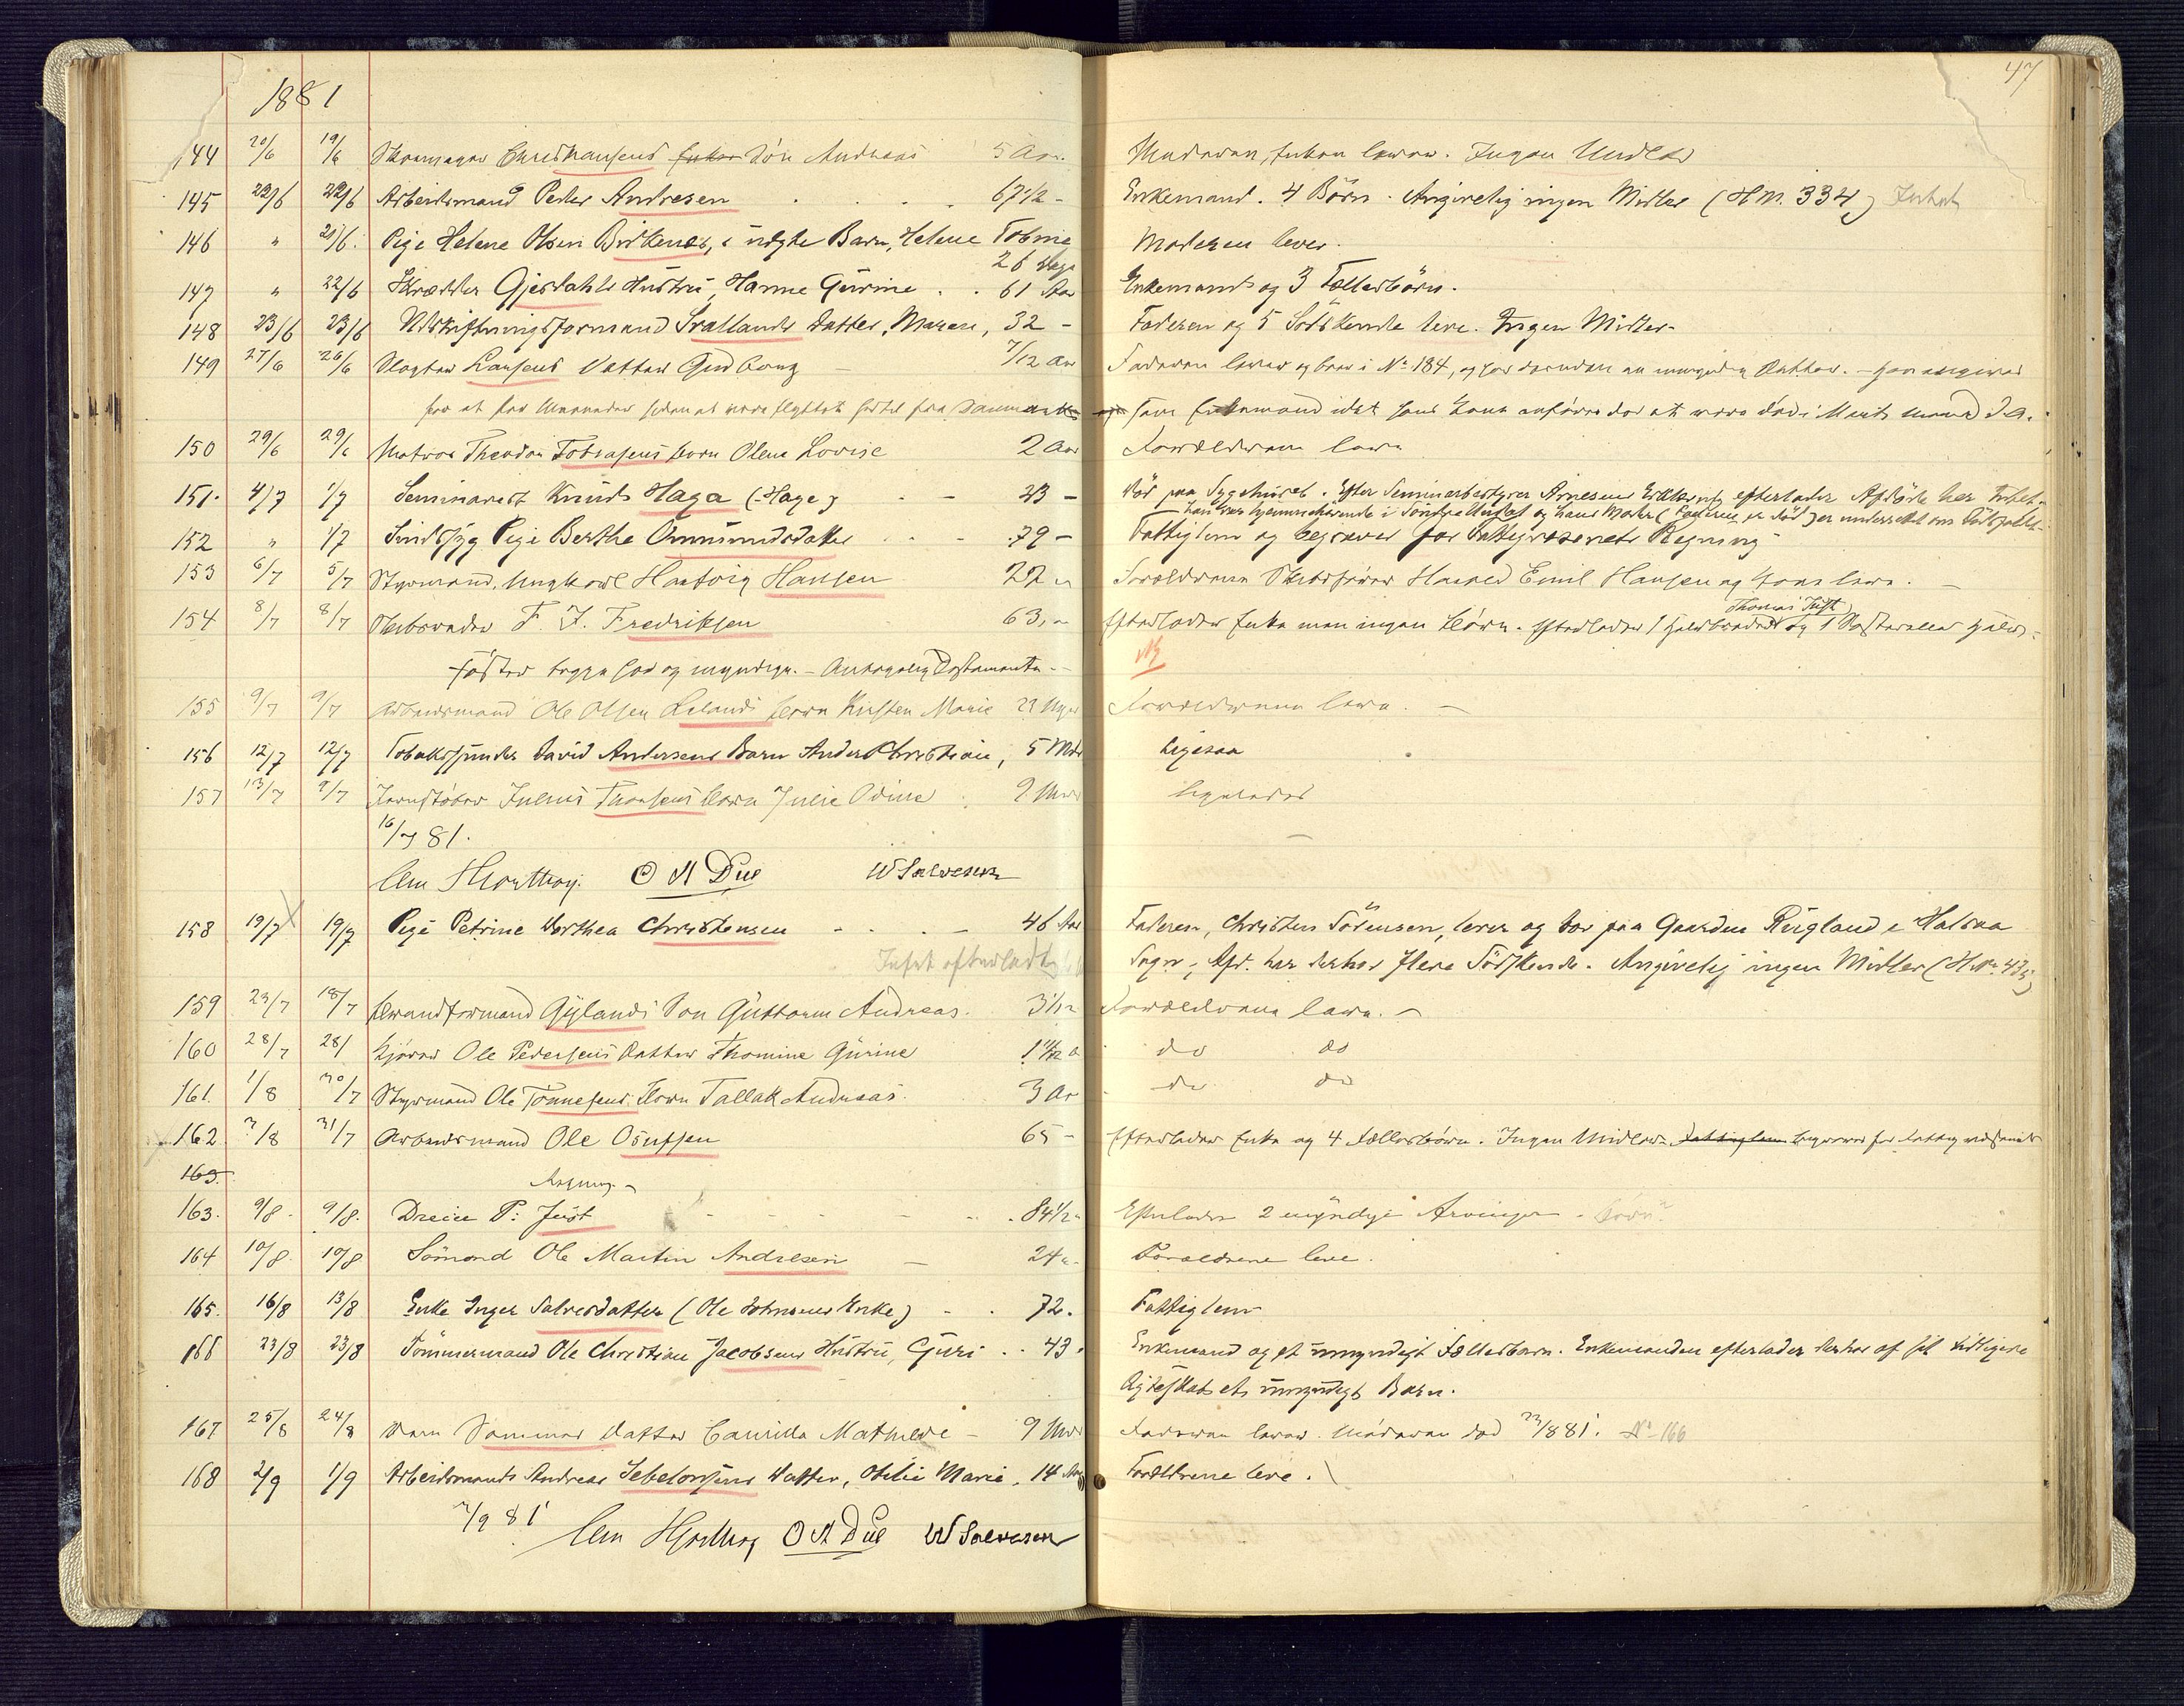 47
1881
144 20/6 19/6 Skomager Christiansens Søn Andreas 5 Aar. Moderen, Enken lever. Ingen Midler
145 22/6 22/6 Arbeidsmand Peder Andresen 67 1/2 - Enkemand. 4 Börn. Angivelig ingen Midler (H.M. 334) Intet
146 " 21/6. Pige Helene Olsen Birkenes, uægte Barn, Helene Tobine Moderen lever.
26 Dage
147 " 22/6 Skrædder Gjesdahls Hustru, Hanne Gurine . . 61 Aar Enkemand og 3 Fællesbörn.
148 23/6 23/6 Udskiftningsformand Svallands Datter, Maren, 32 - Faderen og 5 Södskende leve. Ingen Midler.
149 27/6 26/6 Slagter Larsens Datter Gudborg 7/12 Aar Faderen lever og boer i No 184, og har desuden en umyndig Datter. - Han angives
for at for Maaneder siden at være flyttet hertil fra Danmark som Enkemand idet hans Kone anføres der at være död i Marts Maaned d.A.
150 29/6 29/6 Matros Theodor Tobiasens Barn Olena Lovise 2 Aar Forældrene leve
151. 4/7 1/7 Seminarist Knud Haga (Hage) - 23 - Död paa Sygehuset. Efter Seminarbestyrer Arnesens Erklæring efterlader Afdöde her Intet.
Han var hjemmehørende i Söndre og hans Moder (Faderen er död) er underrettet om Dödsfaldet.
152 " 1/7 Sindssyg Pige Berthe Ommundsdatter 79 - Fattiglem og begraves for Fattigvæsenets Regning
153 6/7 5/7 Styrmand, Ungkarl Hartvig Hansen 22 " Forældrene Skibsfører Harald Emil Hansen og Kone leve.
154 8/7 8/7 Skibsreder F. J. Fredriksen 63, " Efterlader Enke men ingen Börn. Efterlader 1 Halvbroder Thomas Fust og 1 Halv-
söster begge her og myndige. - Antagelig Testamente. -
155 9/7 9/7 Arbeidsmand Ole Olsen Lelands Barn Kirsten Marie 23 Uger Forældrene leve. -
156 12/7 12/7 Tobaksspinder David Andersens Barn Anders Christian, 5 Mdr Ligesaa
157 13/7 9/7 Jernstøber Julius Thorsens Barn Julie Odine 9 Mdr Ligeledes
16/7 81.
Chr Hjorthøy. O A Due W Salvesen
158 19/7 19/7 Pige Petrine Dorthea Christensen - . . - 46 Aar Faderen, Christen Sörensen, lever og bor paa Gaarden Rugland i Halsaa
Intet efterladt Sogn, Afd. har derhos flere Södskende. Angivelig ingen Midler (H.No 473)
159 23/7 18/7 Brandformand Gylands Søn Guttorm Andreas. 3 1/12 Forældrene leve. -
160 28/7 28/ Kjører Ole Pedersens Datter Thomine Gurine 1 11/12 a do do
161. 1/8 30/7 Styrmand Ole Tønnesens Barn Tallak Andreas. 3 Ar do do
162 3/8 31/7 Arbeidsmand Ole Osufsen 65 - Efterlader Enke og 4 Fællesbörn. Ingen Midler. Fattiglem begraves for Fattigvæsenets
163. Regning. -
163. 9/8. 9/8. Dreier P: Just - - - - . 84 1/2 " Efterlader 2 myndige Arvinger - Børn?
164 10/8 10/8 Sömand Ole Martin Andresen - 24 " Forældrene leve.
165. 16/8 13/8 Enke Inger Salvesdatter (Ole Johnsens Enke) - . 72. Fattiglem
166 23/8 23/8 Tömmermand Ole Christian Jacobsens Hustru, Guri . . 43. Enkemand og et umyndigt Fællesbarn. Enkemanden efterlader derhos af sit tidligere
Ægteskab et umyndigt Barn.
167 25/8 24/8 Sammes Datter Camilla Mathilde - 9 Mdr Faderen lever. Moderen död 23/8 81. No 166
168 2/9 1/9 Arbeidsmand Andreas Datter, Otilie Marie. 14 Aar Forældrene leve.
3/9 81
Chr Hjorthøy O A Due W Salvesen